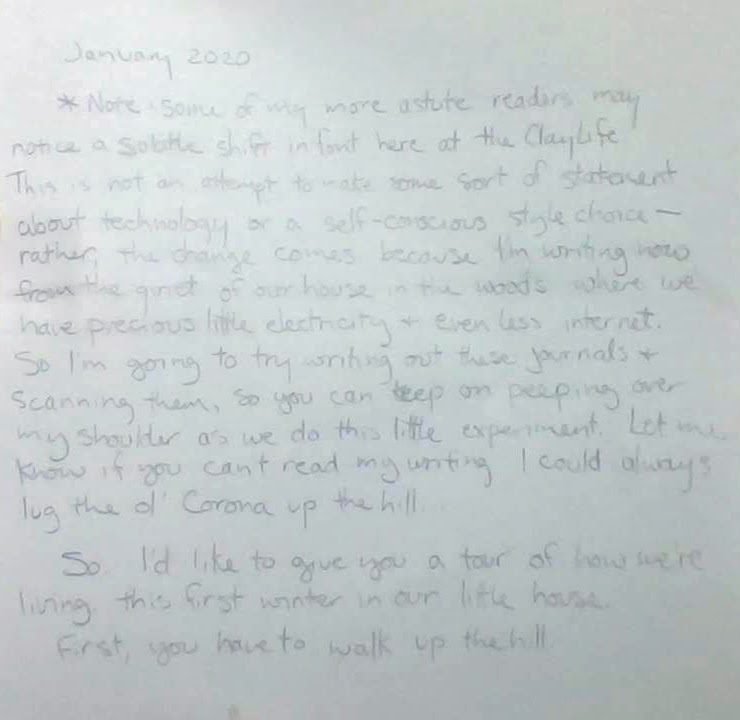 January 2020
* Note: some of my more astute readers may
notice a subtle shift in font here at the ClayLife
This is not an attempt to make some sort of statement
about technology or a self-conscious style choice —
rather, the change comes because I'm writing now
from the quiet of our house in the woods where we
have precious little electricity + even less internet.
So I'm going to try writing out these journals +
scanning them, so you can keep on peeping over
my shoulder as we do this little experiment. Let me
know if you can't read my writing I could always
lug the ol' Corona up the hill...
So. I'd like to give you a tour of how we're
living this first winter in our little house.
First, you have to walk up the hill.